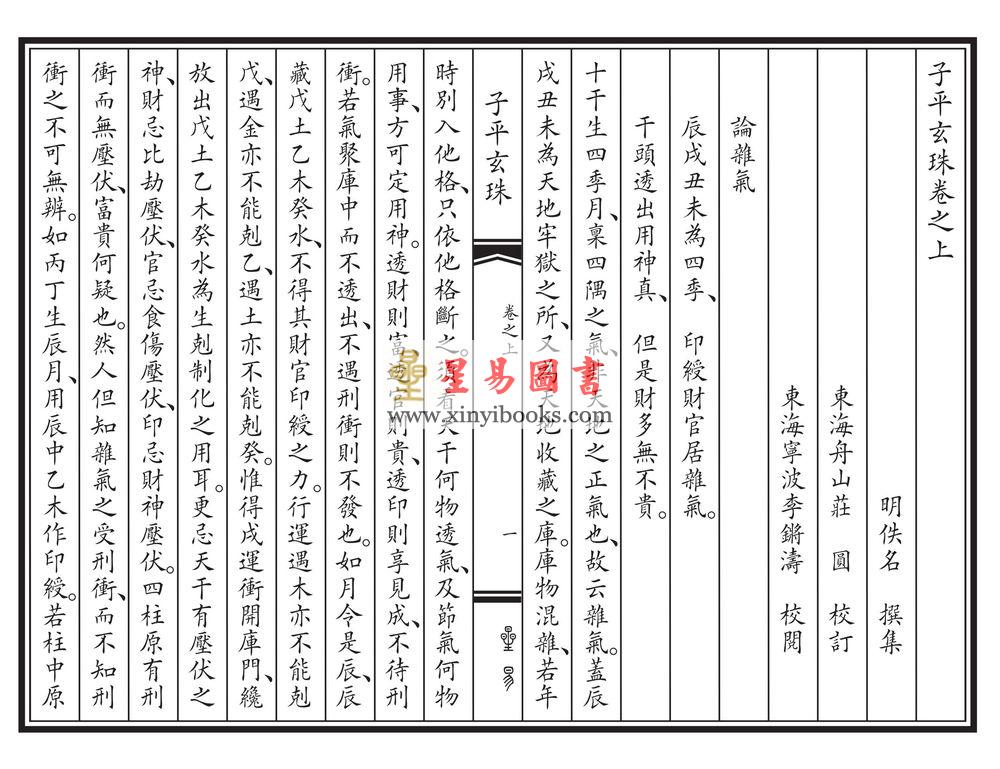 子平玄珠卷之上
明佚名　撰集
東海舟山莊　圓　校訂
東海寧波李鏘濤　校閱
論雜氣
辰戌丑未為四季、　印綬財官居雜氣。
干頭透出用神真、　但是財多無不貴。
十干生四季月、稟四隅之氣、非天地之正氣也、故云雜氣。蓋辰
戌丑未為天地牢獄之所、又為天地收藏之庫。庫物混雜、若年
子平玄珠
卷之上
一
星易
時別入他格、只依他格斷之。須看天干何物透氣、及節氣何物
用事、方可定用神。透財則富、透官則貴、透印則享見成、不待刑
衝。若氣聚庫中而不透出、不遇刑衝則不發也。如月令是辰、辰
藏戊土乙木癸水、不得其財官印綬之力。行運遇木亦不能剋
戊、遇金亦不能剋乙、遇土亦不能剋癸。惟得戌運衝開庫門、纔
放出戊土乙木癸水為生剋制化之用耳。更忌天干有壓伏之
神、財忌比劫壓伏、官忌食傷壓伏、印忌財神壓伏。四柱原有刑
衝而無壓伏、富貴何疑也。然人但知雜氣之受刑衝、而不知刑
衝之不可無辨。如丙丁生辰月、用辰中乙木作印綬。若柱中原
星易圖書
www.xinyibooks.com